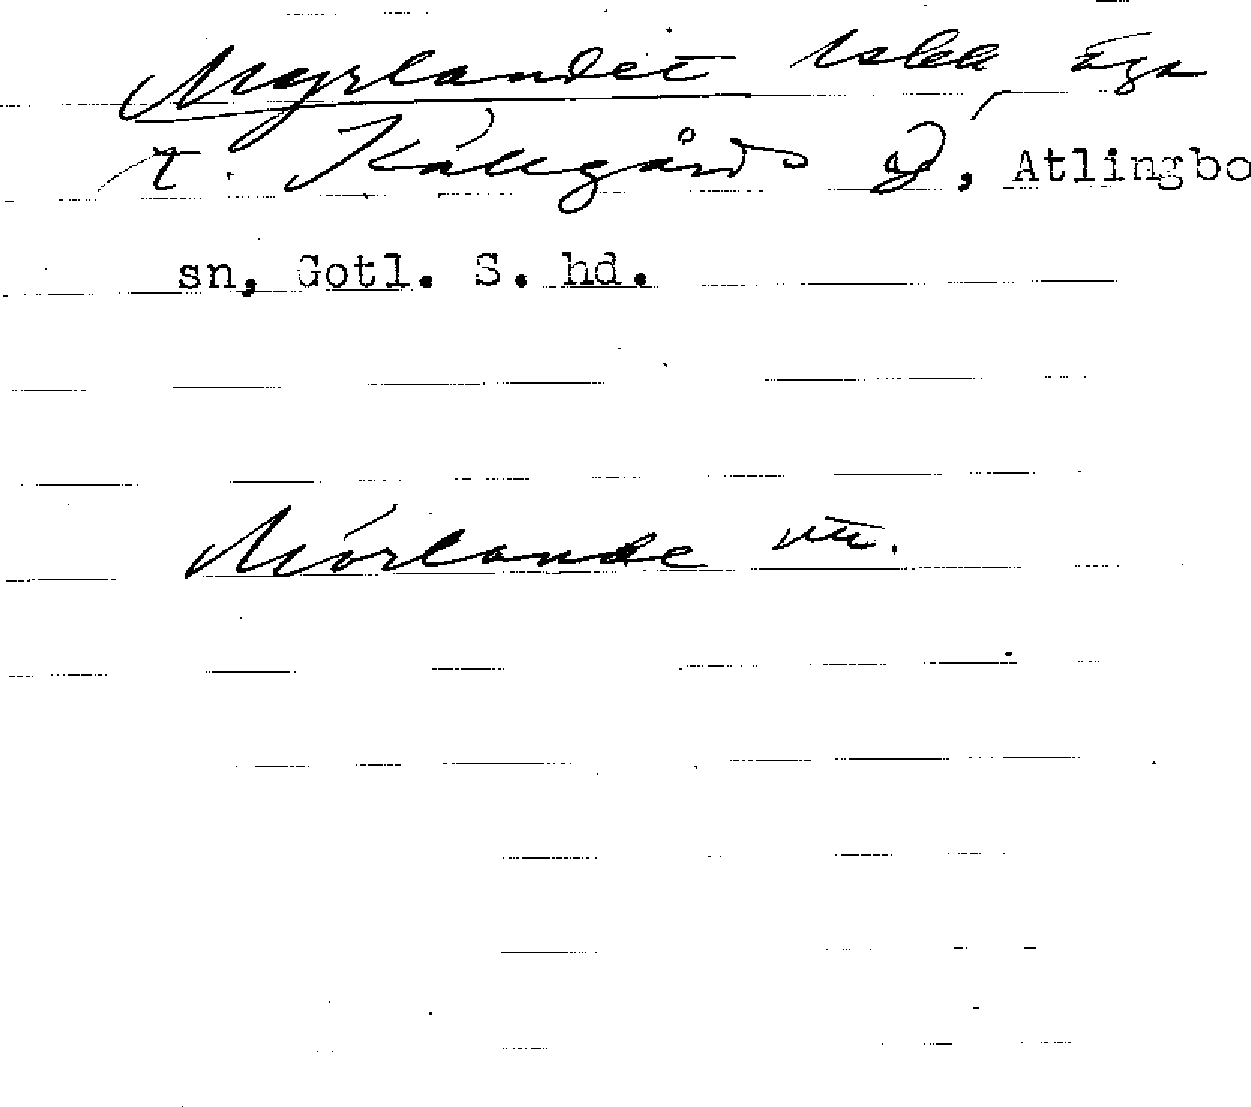 Myrlandet
t. Källgårds 2, Atlingbo
sn, Gotl. S. hd.
Mórlande